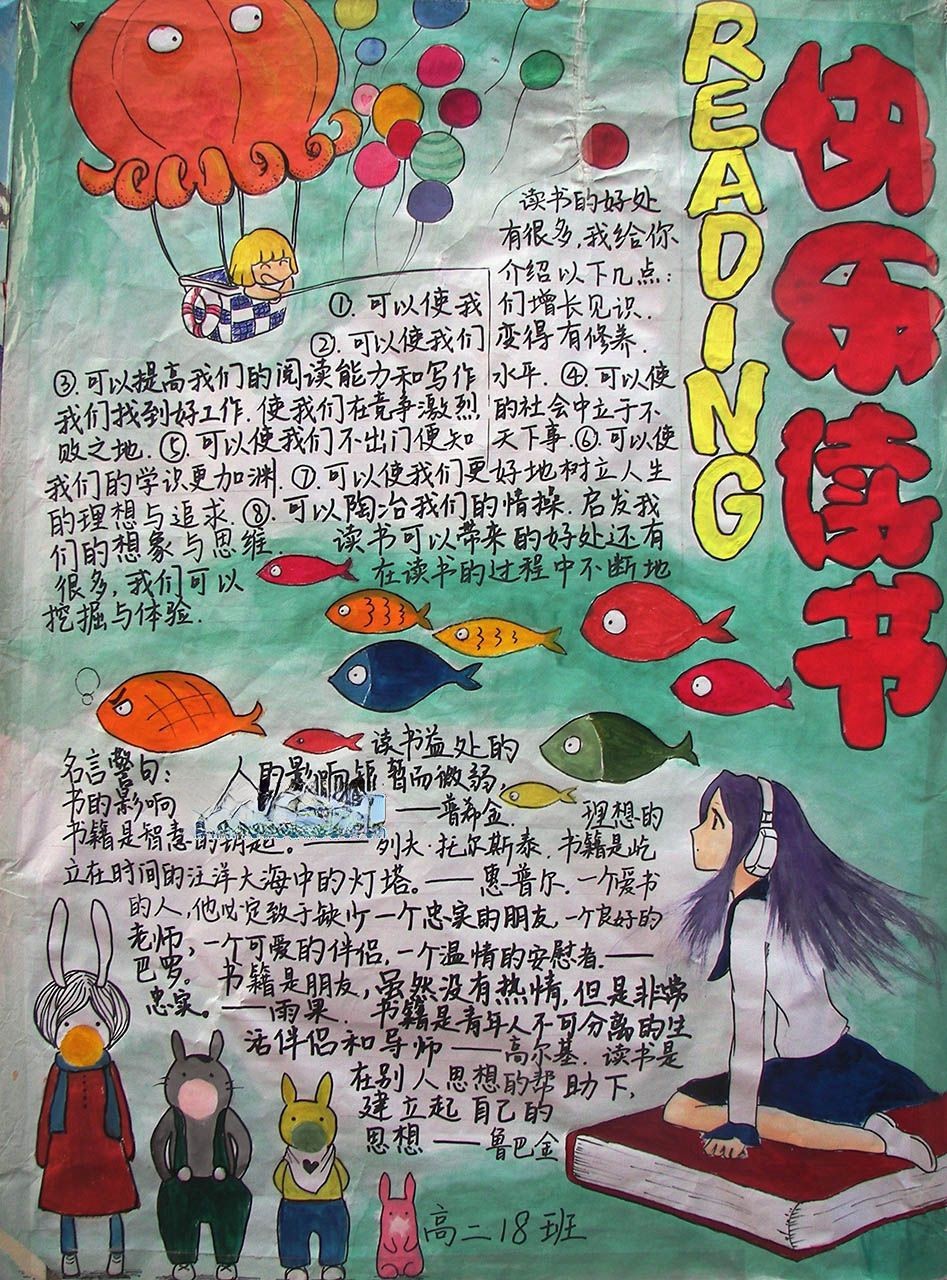 快乐读书
READING
读书的好处
有很多,我给你
介绍以下几点:
①.可以使我们增长见识.
②.可以使我们变得有修养.
③.可以提高我们的阅读能力和写作水平.④.可以使
我们找到好工作.使我们在竞争激烈的社会中立于不
败之地.⑤.可以使我们不出门便知天下事.⑥.可以使
我们的学识更加渊.⑦.可以使我们更好地树立人生
的理想与追求.⑧.可以陶冶我们的情操.启发我
们的想象与思维. 读书可以带来的好处还有
很多,我们可以 在读书的过程中不断地
挖掘与体验.
读书益处的
名言警句: 人的影响 暂而微弱,
书的影响 ——普希金. 理想的
书籍是智慧的钥匙。——列夫·托尔斯泰.书籍是屹
立在时间的汪洋大海中的灯塔。——惠普尔.一个爱书
的人,他必定致于缺少一个忠实的朋友,一个良好的
老师,一个可爱的伴侣,一个温情的安慰者.——
巴罗。 书籍是朋友,虽然没有热情,但是非常
忠实。——雨果. 书籍是青年人不可分离的生
活伴侣和导师——高尔基.读书是
在别人思想的帮助下,
建立起自己的
思想——鲁巴金
高二18班